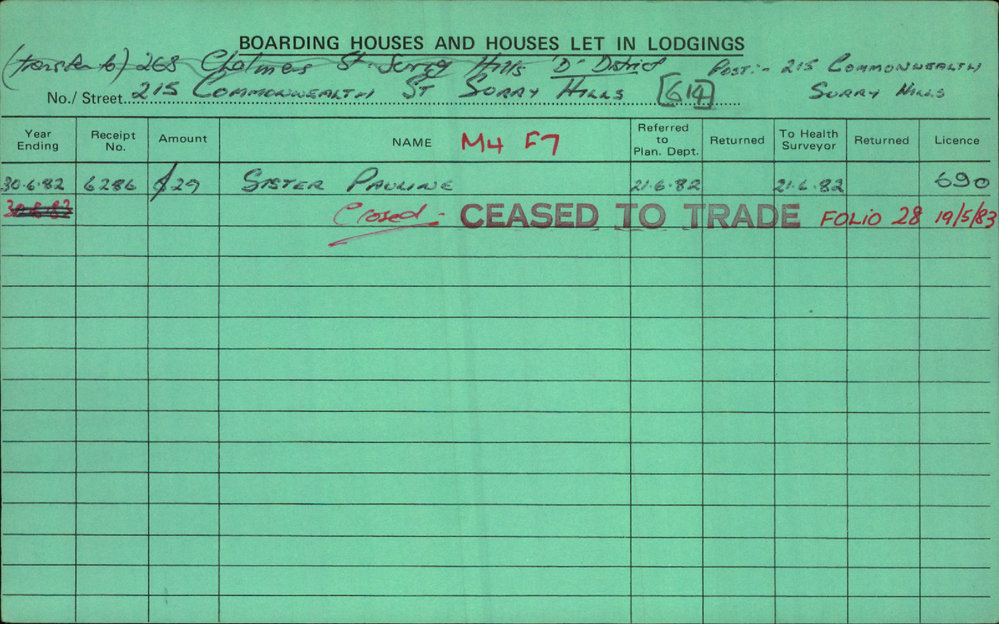 BOARDING HOUSES AND HOUSES LET IN LODGINGS
(transfer to) 268 Chalmers St. Surry Hills 'D' District Post:- 215 Commonwealth
No./Street 215 Commonwealth St Surry Hills [614] Surry Hills
Year Ending Receipt No. Amount NAME M4 F7 Referred to Plan. Dept. Returned To Health Surveyor Returned Licence
30.6.82 6286 $29 Sister Pauline 21.6.82 21.6.82 690
30.6.83 Closed - CEASED TO TRADE FOLIO 28 19/5/83